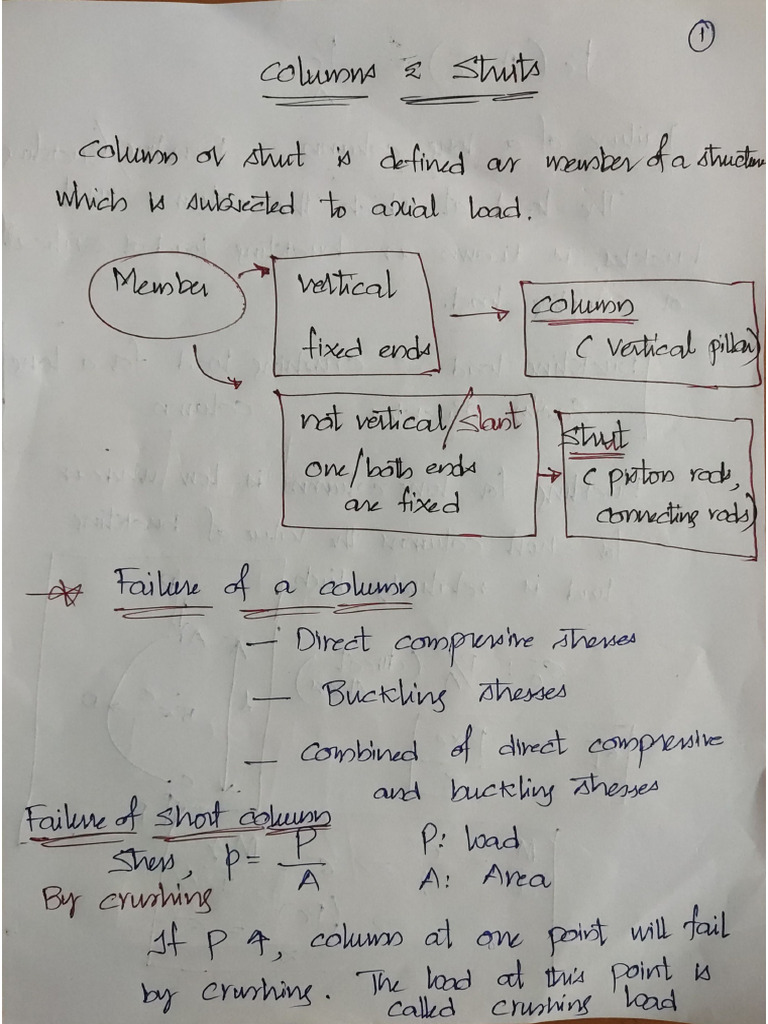 1
Columns & Struts
Column or strut is defined as member of a structure
which is subjected to axial load.
Member
vertical
fixed ends
column
( vertical pillar)
not vertical/slant
one/both ends
are fixed
strut
( piston rods,
connecting rods)
Failure of a column
— Direct compressive stresses
— Buckling stresses
— Combined of direct compressive
and buckling stresses
Failure of short column
Stress, p = P/A
P: load
A: Area
By crushing
If P ↑, column at one point will fail
by crushing. The load at this point is
called crushing load